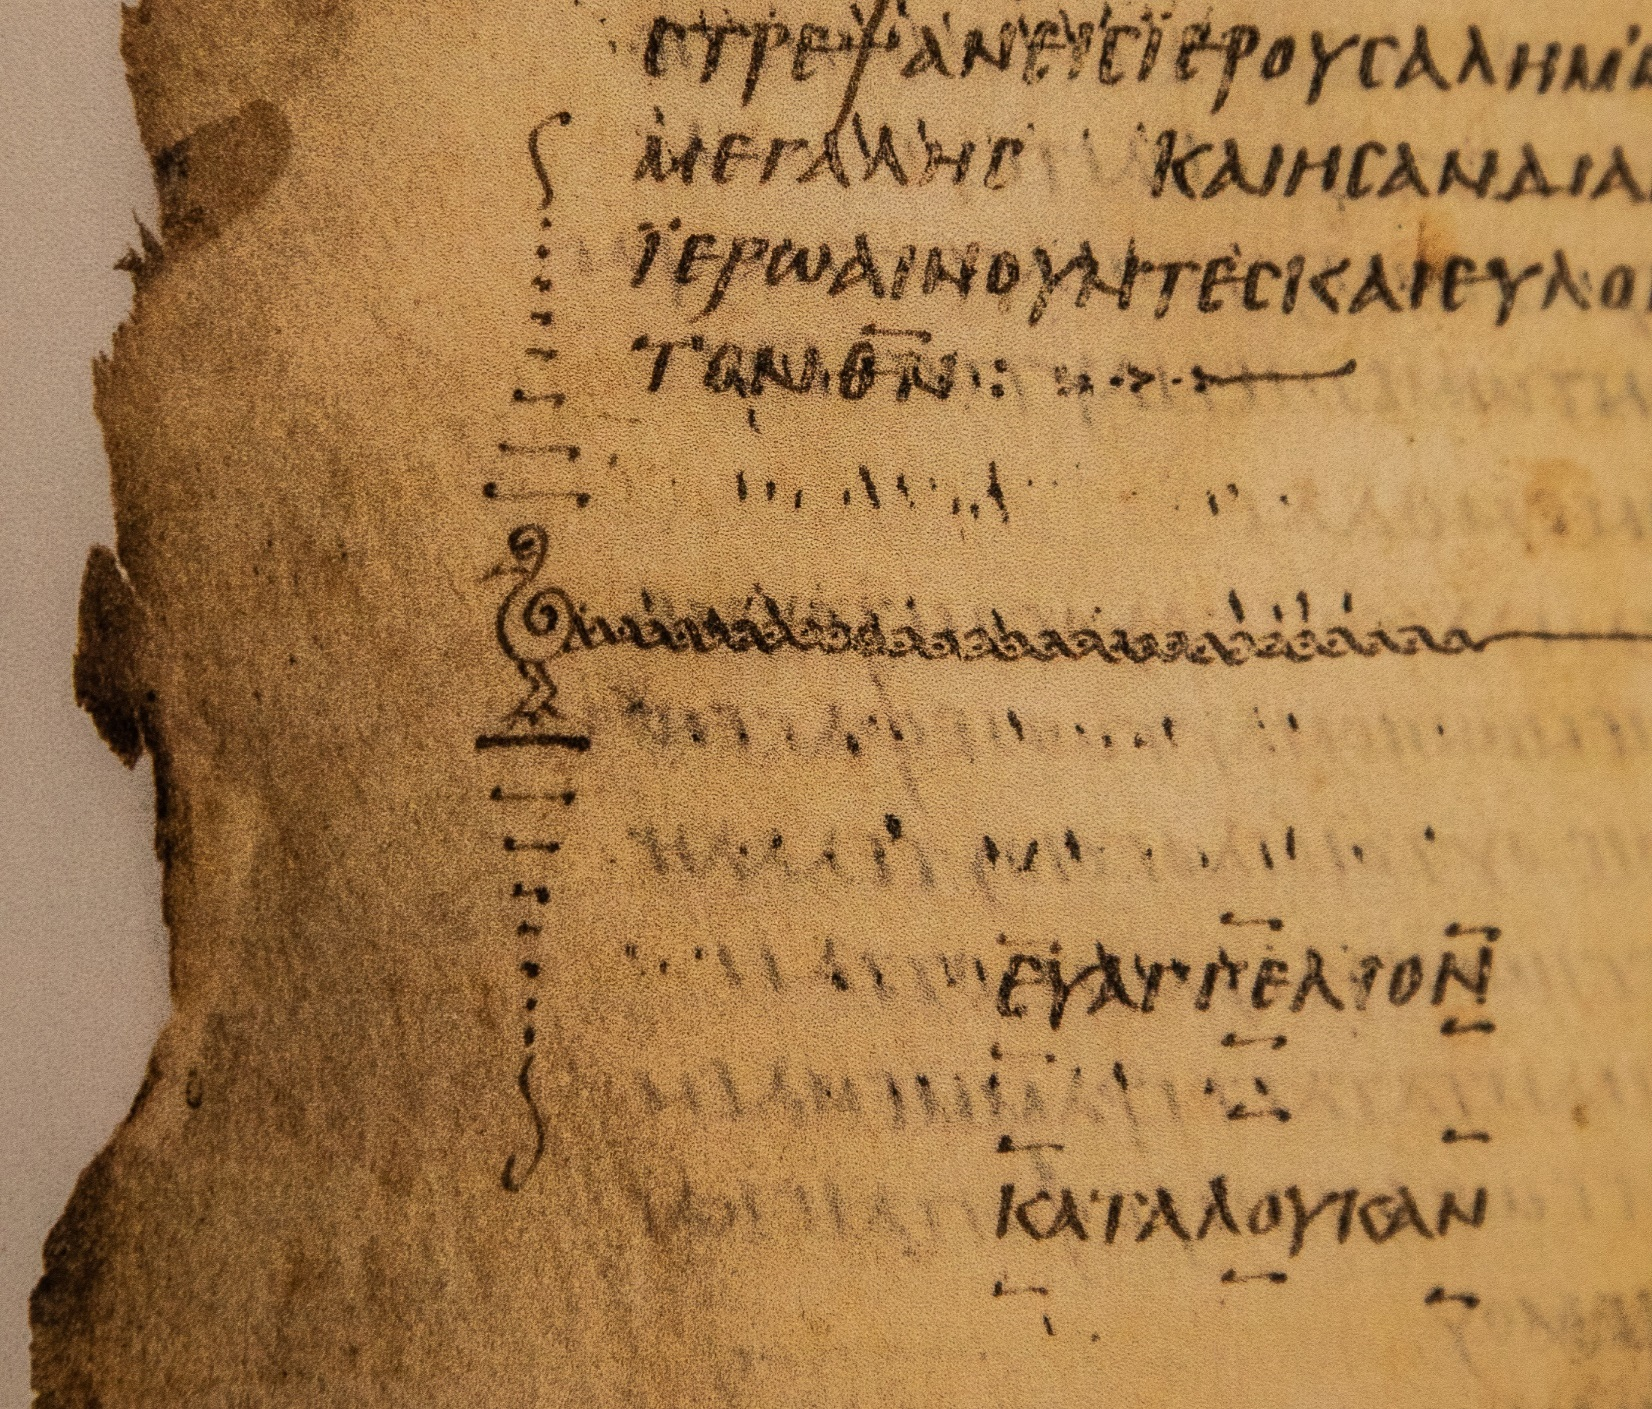 ϹΤΡΕΨΑΝΕΙϹΪΕΡΟΥϹΑΛΗΜ
ΜΕΓΑΛΗϹ ΚΑΙΗϹΑΝΔΙΑ
ΪΕΡΩΑΙΝΟΥΝΤΕϹΚΑΙΕΥΛΟ
ΤΩΝΘ̅Ν̅:
ΕΥΑΓΓΕΛΙΟΝ
ΚΑΤΑΛΟΥΚΑΝ